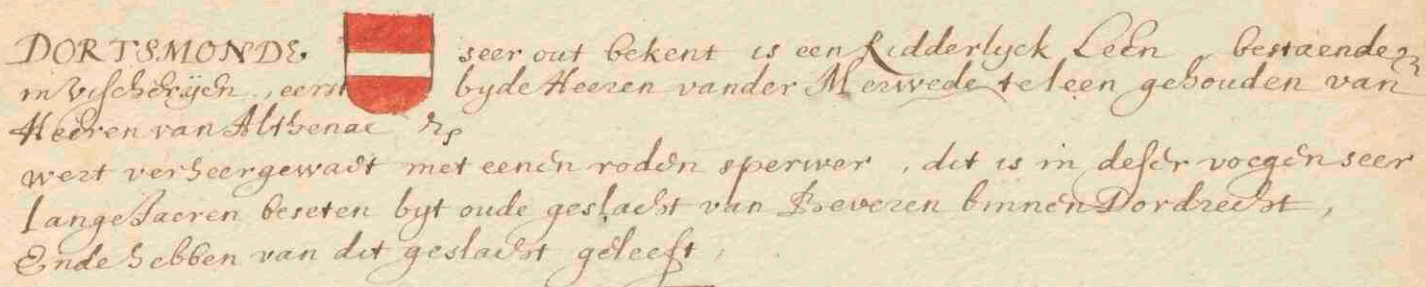 DORTSMONDE, seer out bekent is een Ridderlyck Leen, bestaende
in visscherijen, eerst byde Heeren vander Merwede te leen gehouden van
Heeren van Althenae &
wert verheergewadt met eenen roden sperwer, dit is in deser voegen seer
lange Jaeren beseten byt oude geslacht van Beveren binnen Dordrecht,
Ende hebben van dit geslacht geleeft,